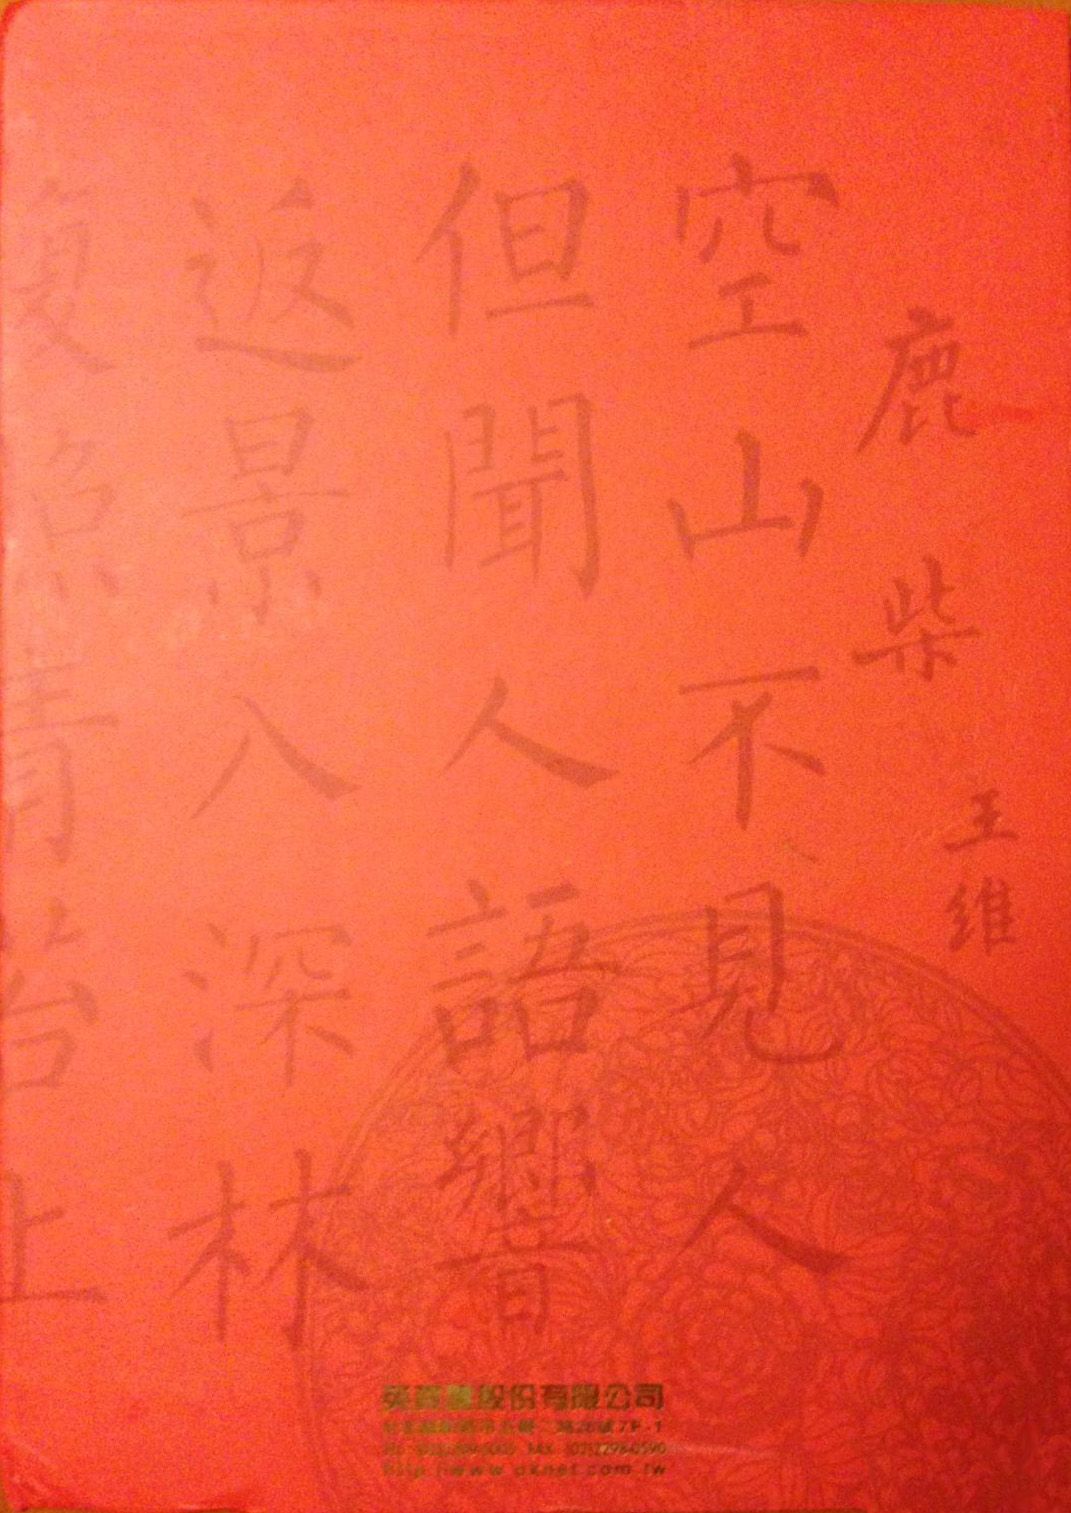 鹿柴
王維
空山不見人
但聞人語響
返景入深林
復照青苔上
股份有限公司
7F-1
FAX (02)2298-0590
http://www.oknet.com.tw